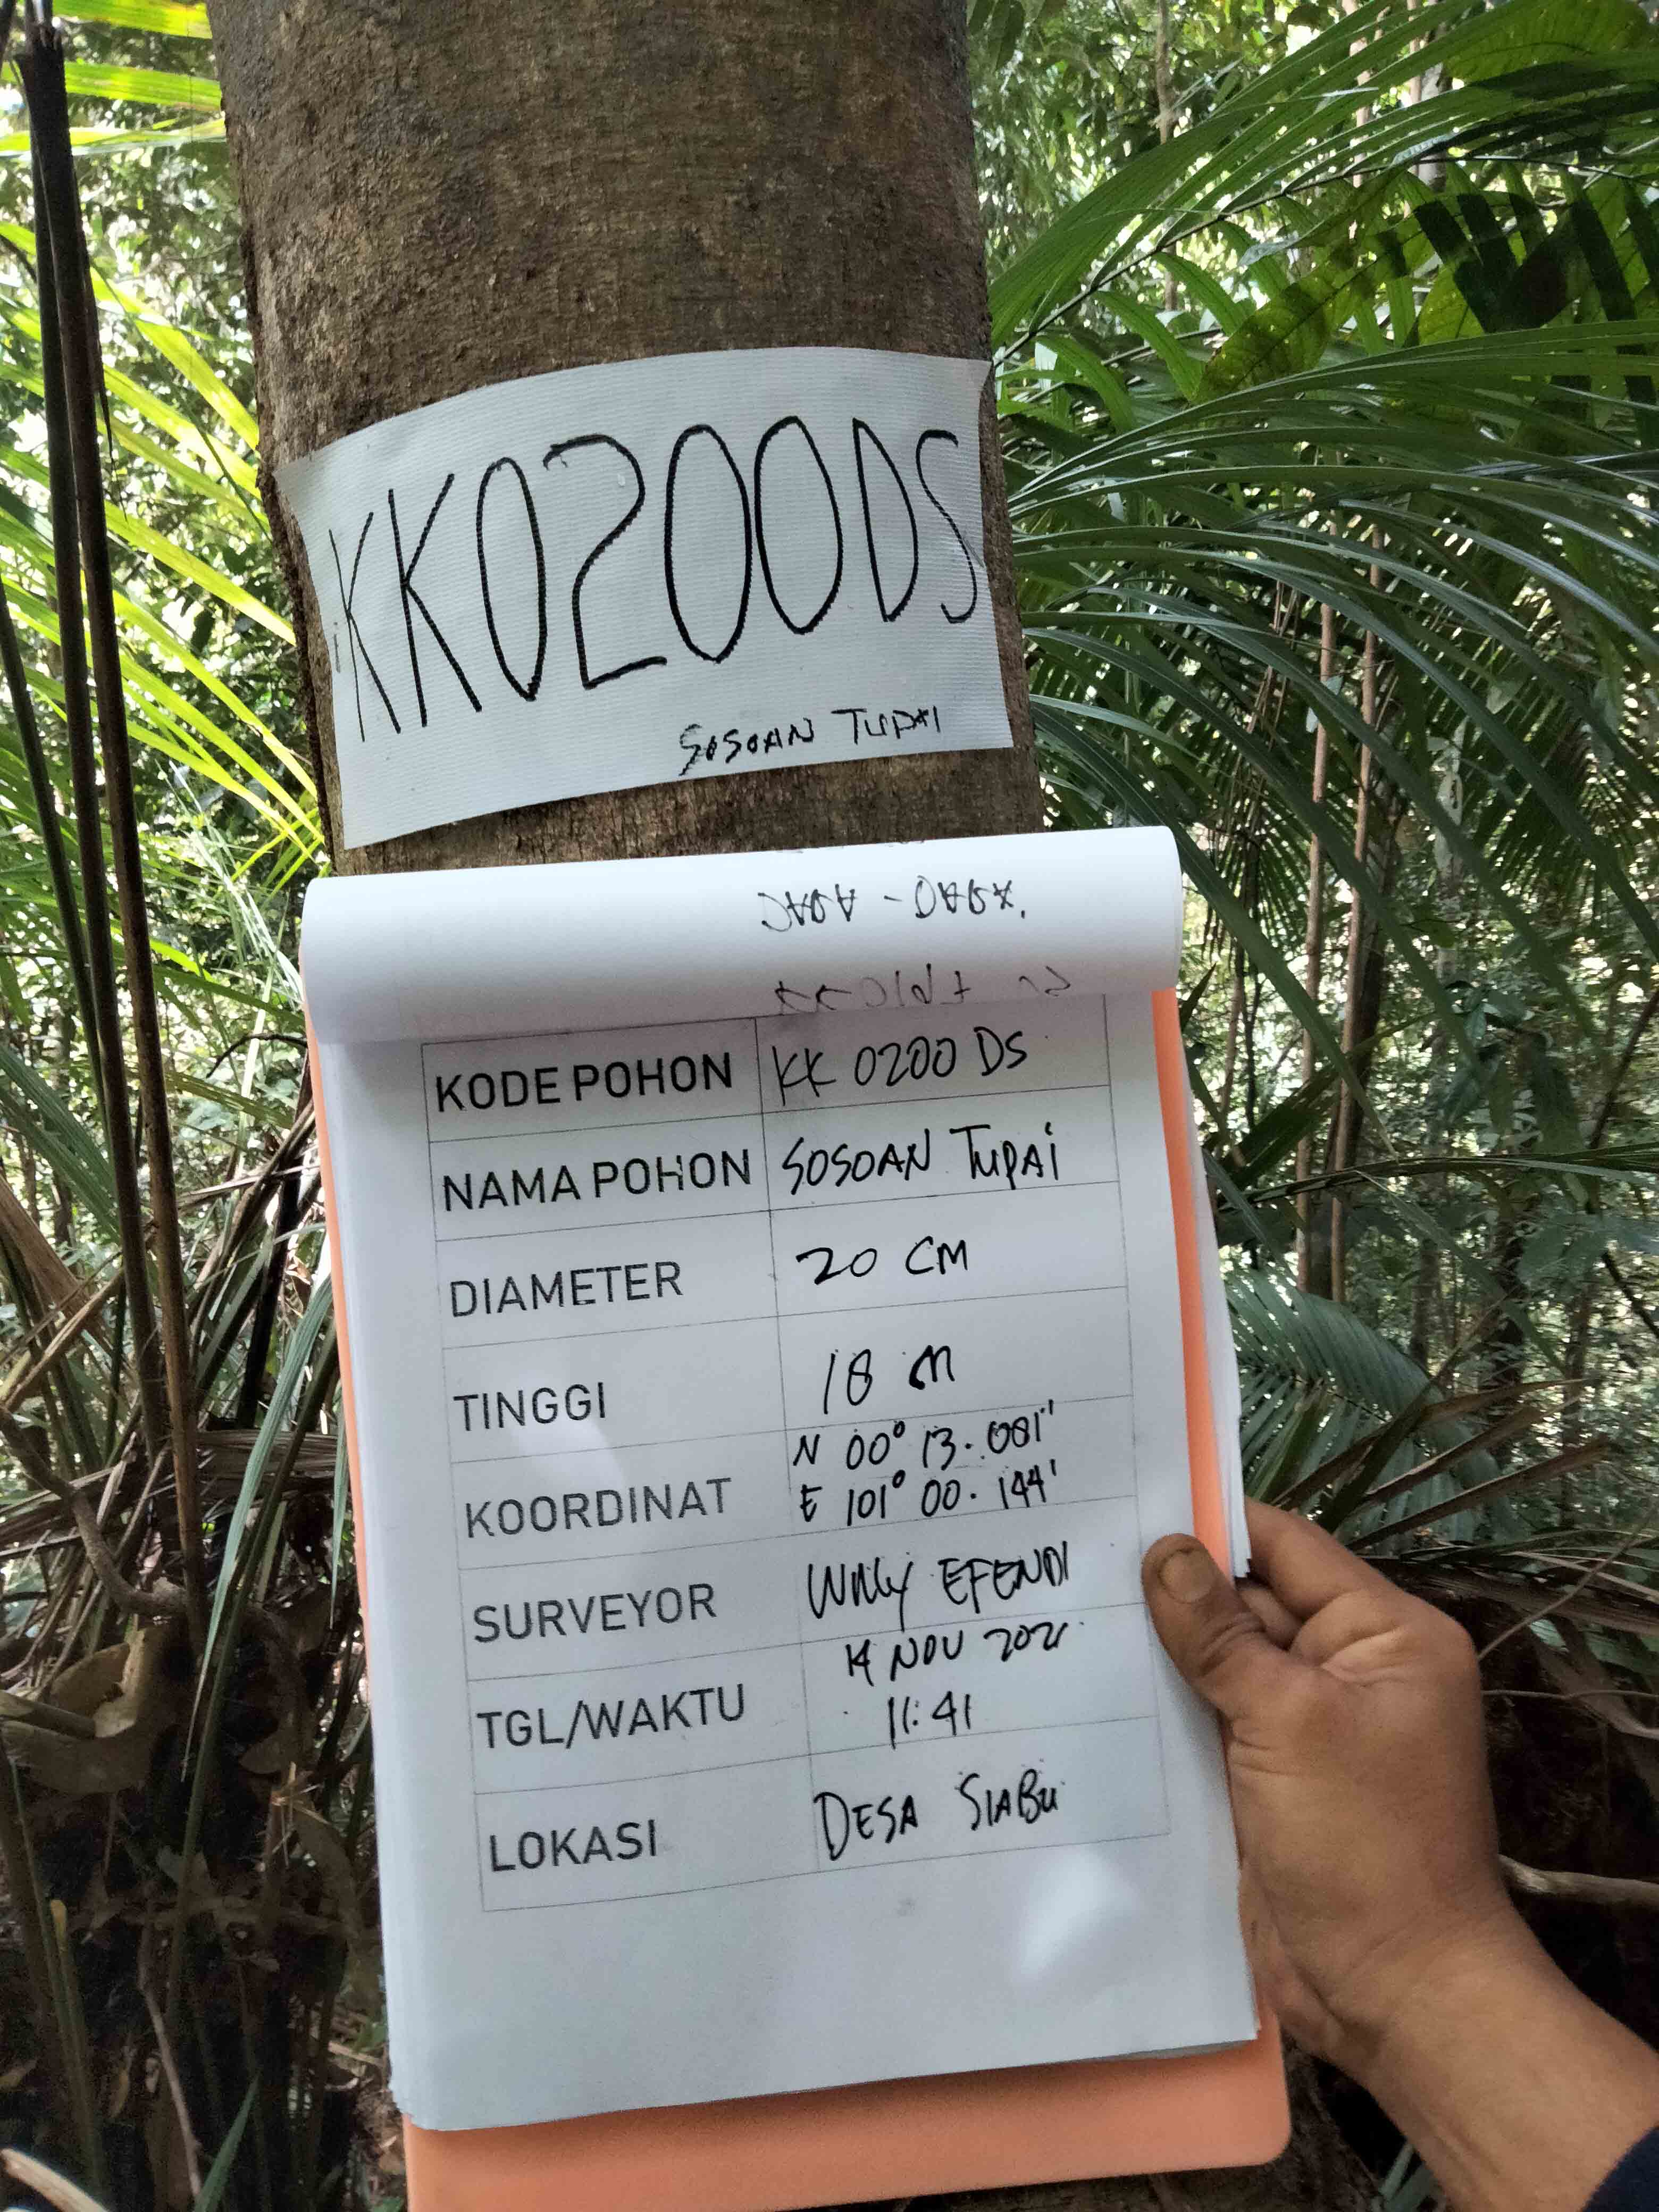 KK0200DS
SOSOAN TUPAI
KODE POHON KK 0200 DS
NAMA POHON SOSOAN TUPAi
DIAMETER 20 CM
TINGGI 18 m
N 00° 13. 081'
KOORDINAT E 101° 00. 144'
SURVEYOR Willy EFENDI
14 NOV
TGL/WAKTU 11:41
LOKASI DESA SIABU